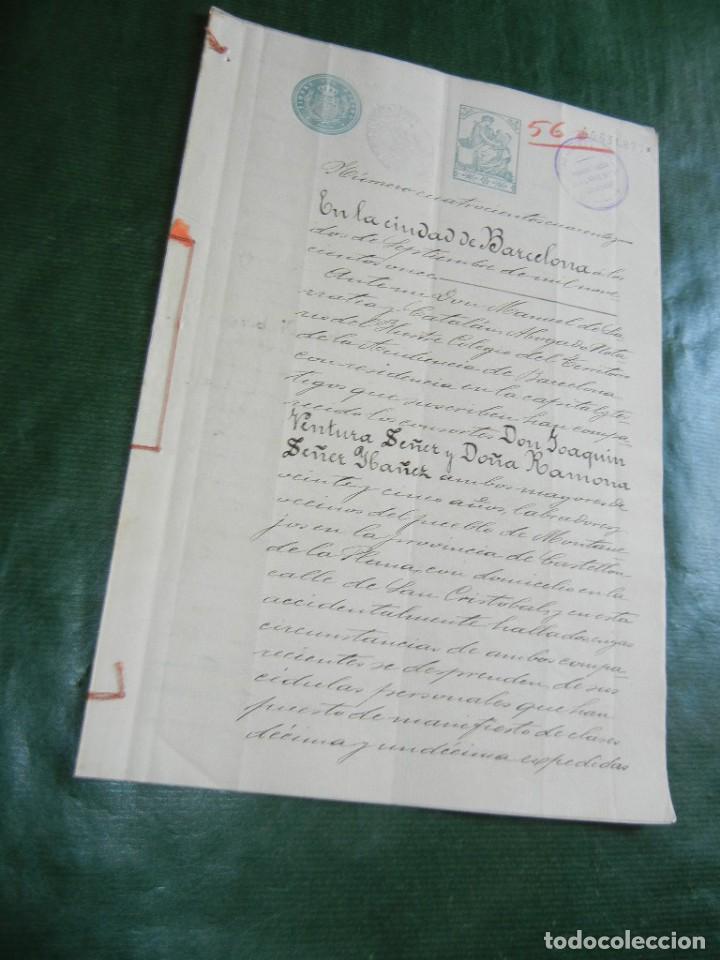 56
Número cuatrocientos cuarenta y
En la ciudad de Barcelona a los
dos de Septiembre de mil nove
cientos once
Ante mi Don Manuel de La
rratea y Catalán, Abogado Nota
rio del Ilustre Colegio del Territorio
de la Audiencia de Barcelona
con residencia en la capital y te
tigos que suscriben han compa
recido los consortes Don Joaquin
Ventura Señer y Doña Ramona
Señer Ibañez ambos mayores de
veinte y cinco años, labradores,
vecinos del pueblo de Montane
jos en la provincia de Castellon
de la Plana, con domicilio en la
calle de San Cristobal y en esta
accidentalmente hallados cuyas
circunstancias de ambos compa-
recientes se desprenden de sus
cédulas personales que han
puesto de manifiesto de clases
décima y undécima expedidas
todocoleccion.net